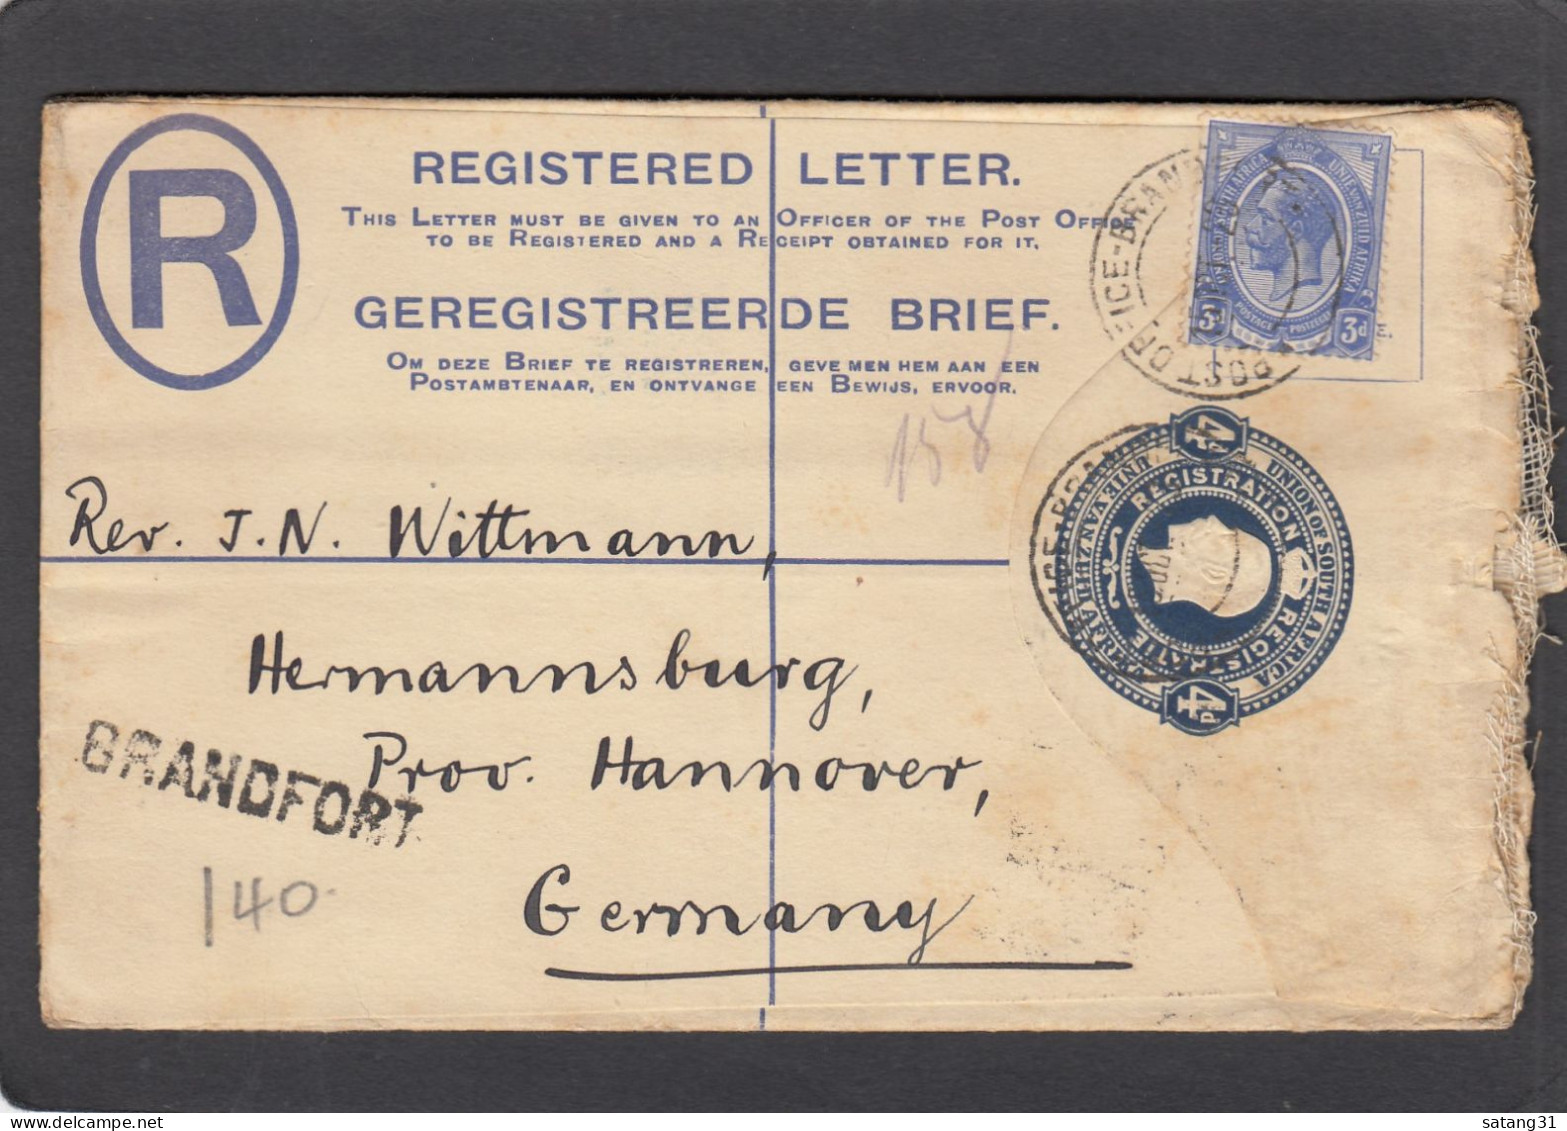 R
REGISTERED LETTER.
THIS LETTER MUST BE GIVEN TO AN OFFICER OF THE POST OFFICE
TO BE REGISTERED AND A RECEIPT OBTAINED FOR IT.
GEREGISTREERDE BRIEF.
OM DEZE BRIEF TE REGISTREREN, GEVE MEN HEM AAN EEN
POSTAMBTENAAR, EN ONTVANGE EEN BEWIJS, ERVOOR.
POST OFFICE-BRAND
UNIE VAN ZUID AFRIKA
3d 3d
POSTAGE POSTZEGEL
158
4
UNION OF SOUTH AFRICA
REGISTRATION
REGISTRATIE
4d
Rev. J. N. Wittmann,
Hermannsburg,
Prov. Hannover,
Germany
BRANDFORT
140
satang31